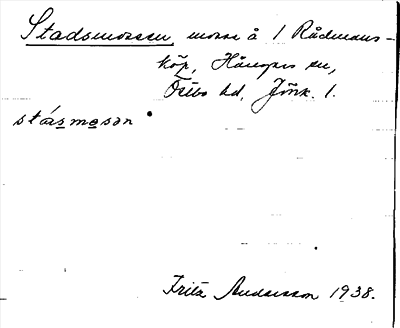 Stadsmossen, mosse å 1 Rådmans-
köp, Hångers sn,
Östbo hd, Jönk. l.
stásmosan
Fritz Andersson 1938.